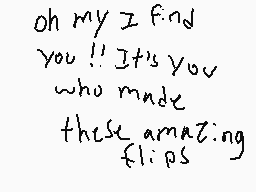 oh my I find
you !! It's you
who made
these amazing
flips